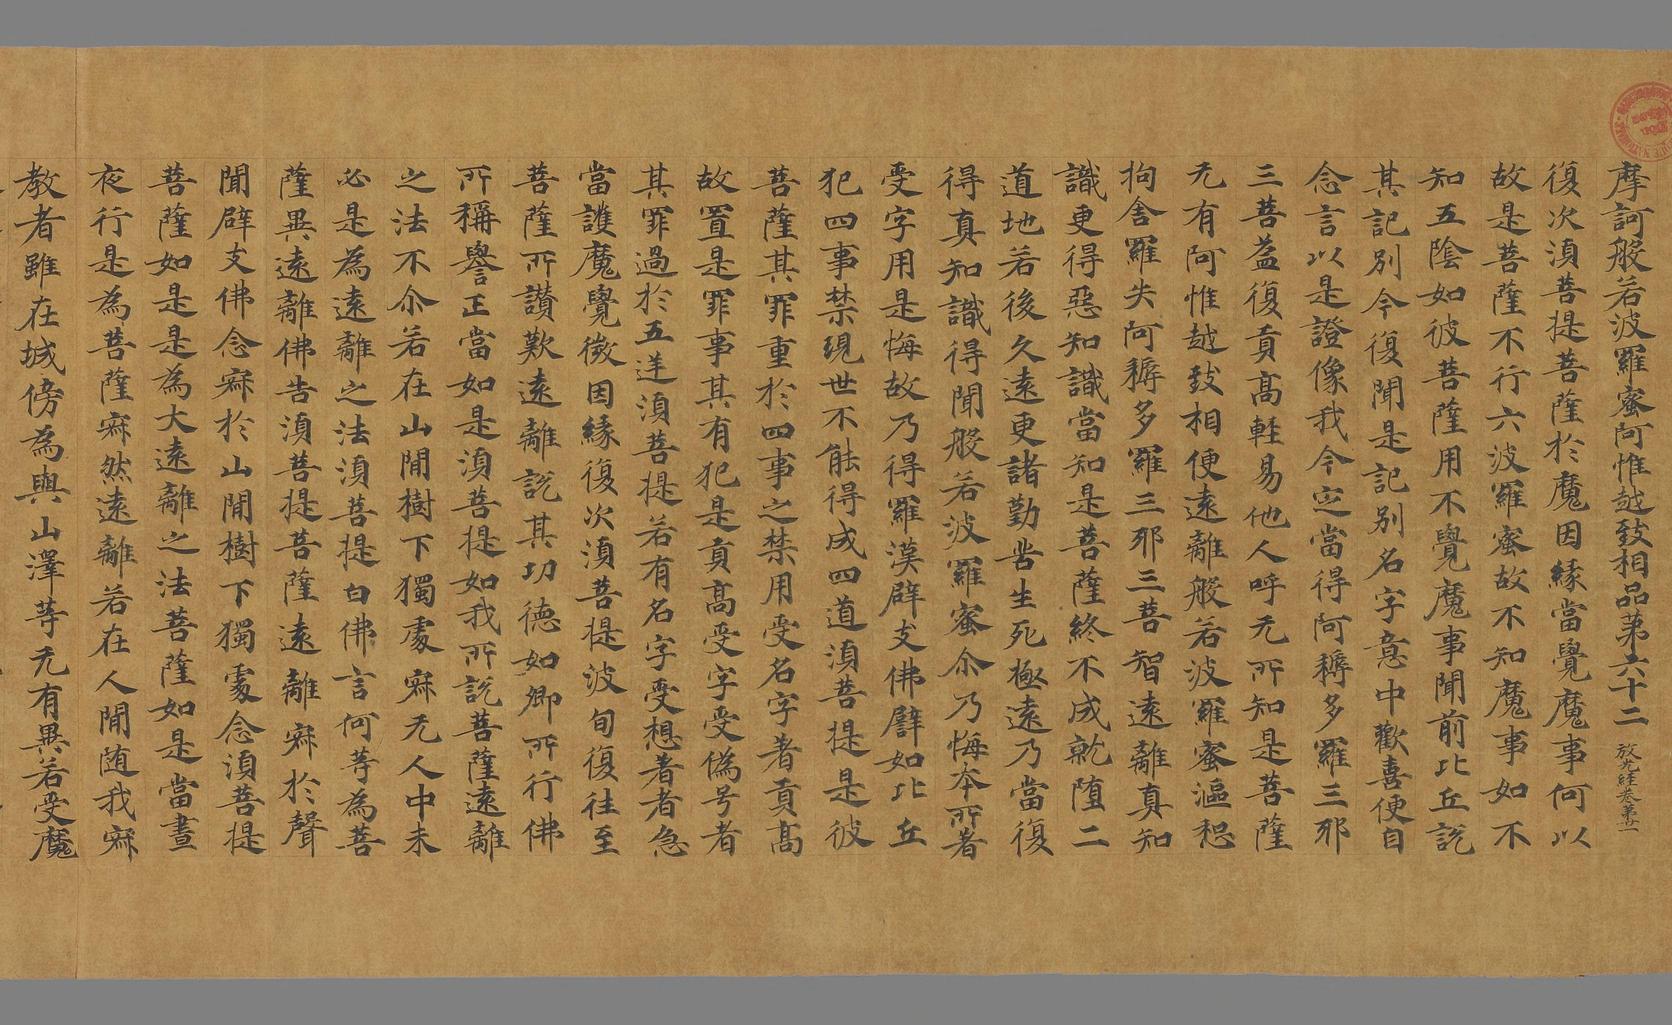 摩訶般若波羅蜜阿惟越致相品第六十二 放光經卷第廿一
復次須菩提菩薩於魔因緣當覺魔事何以
故是菩薩不行六波羅蜜故不知魔事如不
知五陰如彼菩薩用不覺魔事聞前比丘說
其記別今復聞是記別名字意中歡喜便自
念言以是證像我今定當得阿耨多羅三耶
三菩盖復貢高輕易他人呼无所知是菩薩
无有阿惟越致相便遠離般若波羅蜜漚惒
拘舍羅失阿耨多羅三耶三菩智遠離真知
識更得惡知識當知是菩薩終不成就堕二
道地若後久遠更諸勤苦生死極遠乃當復
得真知識得聞般若波羅蜜尒乃悔本所著
受字用是悔故乃得羅漢辟支佛譬如比丘
犯四事禁現世不能得成四道須菩提是彼
菩薩其罪重於四事之禁用受名字者貢高
故置是罪事其有犯是貢高受字受偽号者
其罪過於五逆須菩提若有名字受想著者急
當護魔覺微因緣復次須菩提波旬復往至
菩薩所讃歎遠離說其功德如卿所行佛
所稱譽正當如是須菩提如我所說菩薩遠離
之法不尒若在山閒樹下獨處寂无人中未
必是為遠離之法須菩提白佛言何等為菩
薩異遠離佛告須菩提菩薩遠離寂於聲
聞辟支佛念寂於山閒樹下獨處念須菩提
菩薩如是是為大遠離之法菩薩如是當晝
夜行是為菩薩寂然遠離若在人閒随我寂
教者雖在城傍為與山澤等无有異若受魔